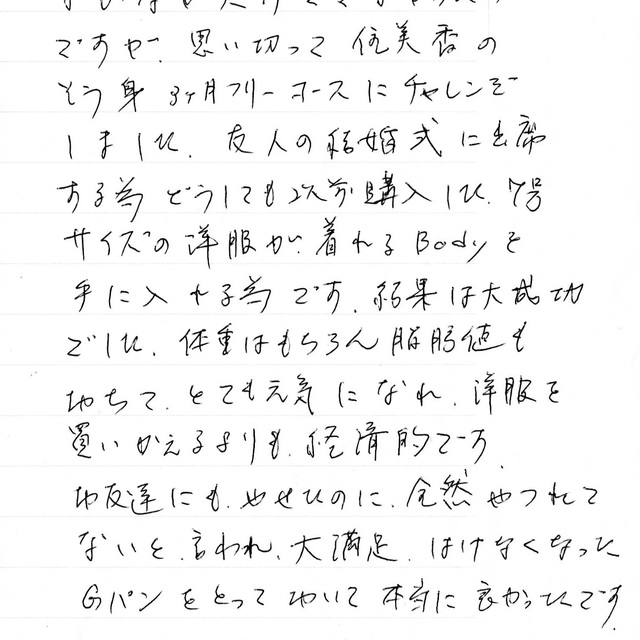 ですが、思い切って 優美香の
そう身 3ヶ月フリーコースにチャレンジ
しました。友人の結婚式に出席
する為 どうしても以前購入した、7号
サイズの洋服が、着れるBodyを
手に入れる為です。結果は大成功
でした。体重はもちろん脂肪値も
おちて、とても元気になれ、洋服を
買いかえるよりも、経済的です。
お友達にも、やせたのに、全然やつれて
ないと、言われ、大満足、はけなくなった
Gパンをとっておいて本当に良かったです